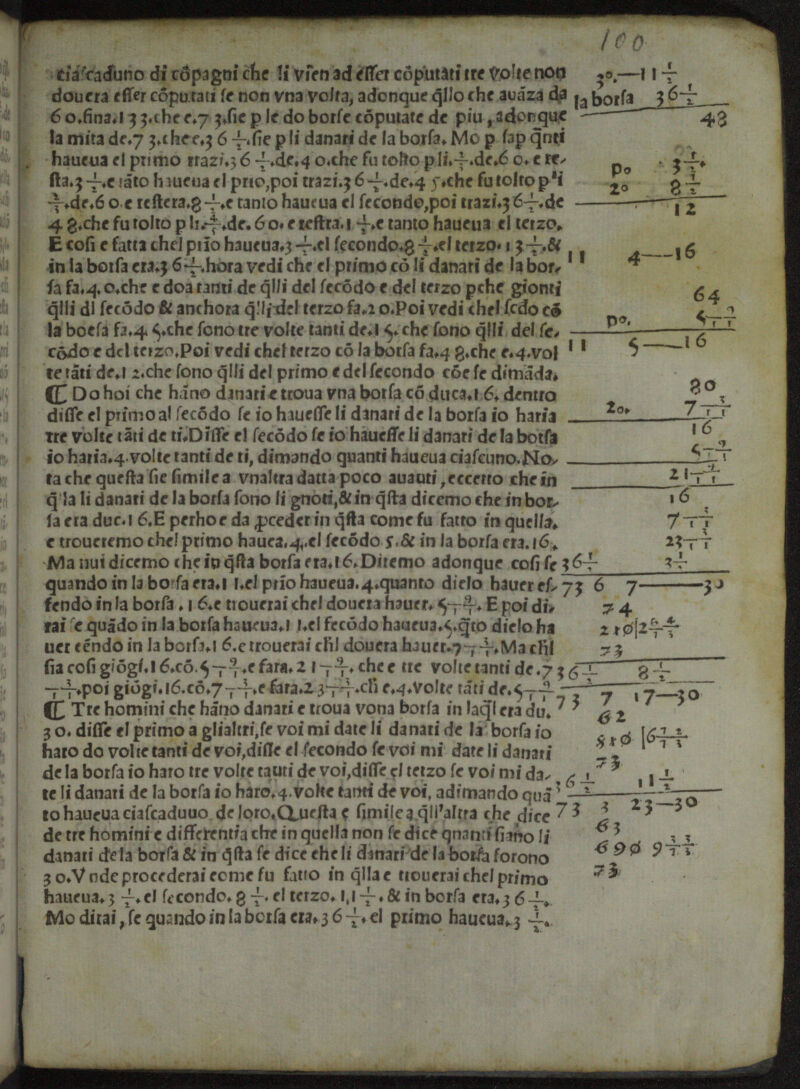 100
ciascaduno di cõpagni che li vien ad esser cõputati tre volte non
douera esser cõputati se non vna volta, adonque q̃llo che auãza da
6 o.fina.1 3 3.che e.7 3.sie p le do borse cõputate de piu, adonque
la mita de.7 3.che e.3 6 1/2.sie p li danari de la borsa. Mo p sap q̃nti
haueua el primo trazi.3 6 1/2.de.4 o.che fu tolto p li.1/2.de.6 o. e re-
sta.3 1/2.e tãto haueua el prio, poi trazi.3 6 1/2.de.4 5.che fu tolto p li
3/4.de.6 o.e restera.8 1/2.e tanto haueua el secondo, poi trazi.3 6 1/2.de
4 8.che fu tolto p li. 4/5 .de. 6 o. e restra.1 1 1/2.e tanto haueua el terzo.
E cosi e fatta chel prio haueua.3 1/2.el secondo.8 1/2.el terzo.1 1 1/2.&
in la borsa era.3 6 1/2.hora vedi che el primo cõ li danari de la bor-
sa fa.4 o.che e doa tanti de q̃lli del secõdo e del terzo pche gionti
q̃lli dl secõdo & anchora q̃lli del terzo fa.2 o.Poi vedi chel scdo cõ
la borsa fa.4 5.che sono tre volte tanti de.1 5. che sono q̃lli del se-
cõdo e del terzo.Poi vedi chel terzo cõ la borsa fa.4 8.che e.4.vol
te tãti de.1 2.che sono q̃lli del primo e del secondo cõe se dimãda.
⁋ Do hoi che hãno danari e troua vna borsa cõ duca.1 6. dentro
disse el primo al secõdo se io hauesse li danari de la borsa io haria
tre volte tãti de ti.Disse el secõdo se io hauesse li danari de la borsa
io haria.4.volte tanti de ti, dimando quanti haueua ciascuno.No-
ta che questa sie simile a vnaltra datta poco auanti, eccetto che in
q̃lla li danari de la borsa sono li gnoti,& in q̃sta dicemo che in bor-
sa era duc.1 6.E perho e da ꝓceder in q̃sta come fu fatto in quella.
e troueremo chel primo hauea.4.el secõdo 5.& in la borsa era.1 1.
Ma nui dicemo che in q̃sta borsa era.1 6.Diremo adonque cosi se
quando in la borsa era.1 1.el prio haueua.4.quanto dielo hauer es-
sendo in la borsa.1 6.e trouerai chel douera hauer. 5 9/11. E poi di-
rai se quãdo in la borsa haueua.1 1.el secõdo haueua.5.q̃to dielo ha
uer essendo in la borsa.1 6.e trouerai chl douera hauer.7 3/11.Ma chl
sia cosi giõgi.1 6.cõ.5 9/11.e fara. 2 1 9/11.che e tre volte tanti de.7
3/11.poi giõgi.16.cõ.7 3/11.e fara.2 3 3/11.chi e.4.volte tãti de.5 9/11
⁋ Tre homini che hãno danari e troua vona borsa in laq̃l era du.
3 o. disse el primo a glialtri,se voi mi date li danari de la borsa io
haro do volte tanti de voi,disse el secondo se voi mi date li danari
de la borsa io haro tre volte tanti de voi,disse el terzo se voi mi da-
te li danari de la borsa io haro.4.volte tanti de voi, adimando quã
to haueua ciascaduuo de loro.Questa e simile a q̃ll'altra che dice
de tre homini e differentia che in quella non se dice quanti siano li
danari dela borsa & in q̃sta se dice che li danari de la borsa forono
3 o.Vnde procederai come fu fatto in q̃lla e trouerai chel primo
haueua.3 1/2.el secondo.8 1/2.el terzo.1 1 1/2.& in borsa era.3 6 1/2.
Mo dirai, se quando in la borsa era.3 6 1/2.el primo haueua.3 1/2.
3º.—1 1 1/2
la borsa 3 6 1/2
48
pº 3 1/2
2º 8 1/2
12
11 4—16
64
pº. 5 9/11
11 5—16
80
2º. 7 3/11
16
5 9/11
2 1 9/11
16
7 3/11
23 3/11
3 6 1/2 3 1/2
73 6 7—30
74
210|2
73
3 6 1/2 8 1/2
73 7 17—30
62
510|6
73
3 6 1/2 11 1/2
73 3 23—30
63
690 9
73